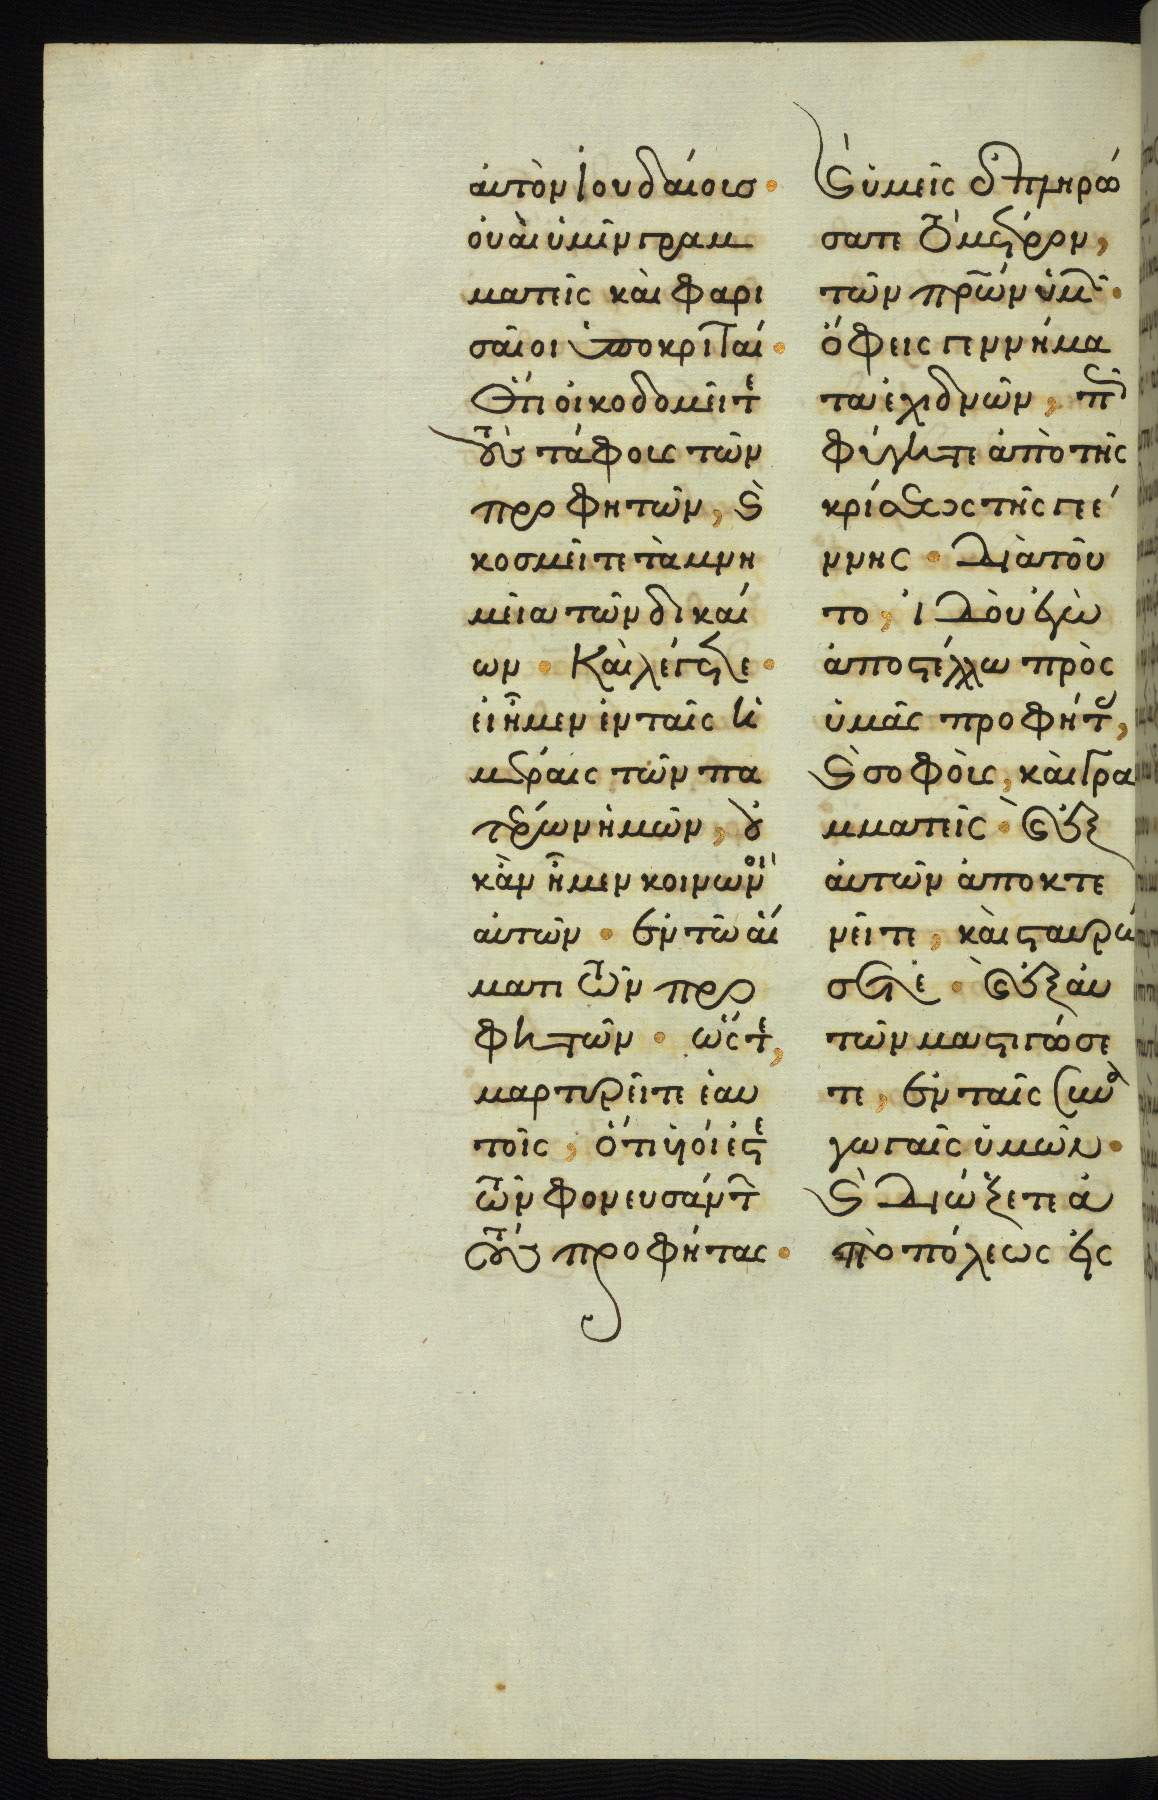 ἀυτὸν Ἰουδαίους·
ὀυὰι ὑμῖν γραμ
ματεῖς κὰι φαρι
σαῖοι ὑποκριταί·
Ὅτι ὀικοδομεῖτὲ
τοὺς τάφους τῶν
προφητῶν, ϗ̀
κοσμεῖτε τὰ μνη
μεῖα τῶν δικαί
ων· Κὰι λέγετε·
ἐι ἦμεν ἐν ταῖς ἡ
μέραις τῶν πα
τέρων ἡμῶν, ὀυ
κ ἂν ἦμεν κοινωνοὶ
ἀυτῶν· ἐν τῶ ἅι
ματι τῶν προ
φητῶν· ὥστὲ,
μαρτυρεῖτε ἑαυ
τοῖς, ὅτι ὑιόι ἐστὲ
τῶν φονευσάντων
τοὺς προφήτας·
ϗ̀ ὑμεῖς ἐπληρώ
σατε τὸ μέτρον,
τῶν πρ̅ων ὑμῶν·
ὄφεις γεννήμα
τα ἐχιδνῶν, πῶς
φύγητε ἀπὸ τῆς
κρίσεως τῆς γεέ
ννης· Διὰ τοῦ
το, ἰδὸυ ἐγὼ
ἀποστέλλω πρὸς
ὑμᾶς προφήτας,
ϗ̀ σοφὸυς, κὰι γρα
μματεῖς· ϗ̀ ἐξ
ἀυτῶν ἀποκτε
νεῖτε, κὰι σταυρώ
σετε· ϗ̀ ἐξ ἀυ
τῶν μαστιγώσε
τε, ἐν ταῖς συνα
γωγαῖς ὑμῶν·
ϗ̀ Διώξετε ἀ
πὸ πόλεως ἐις